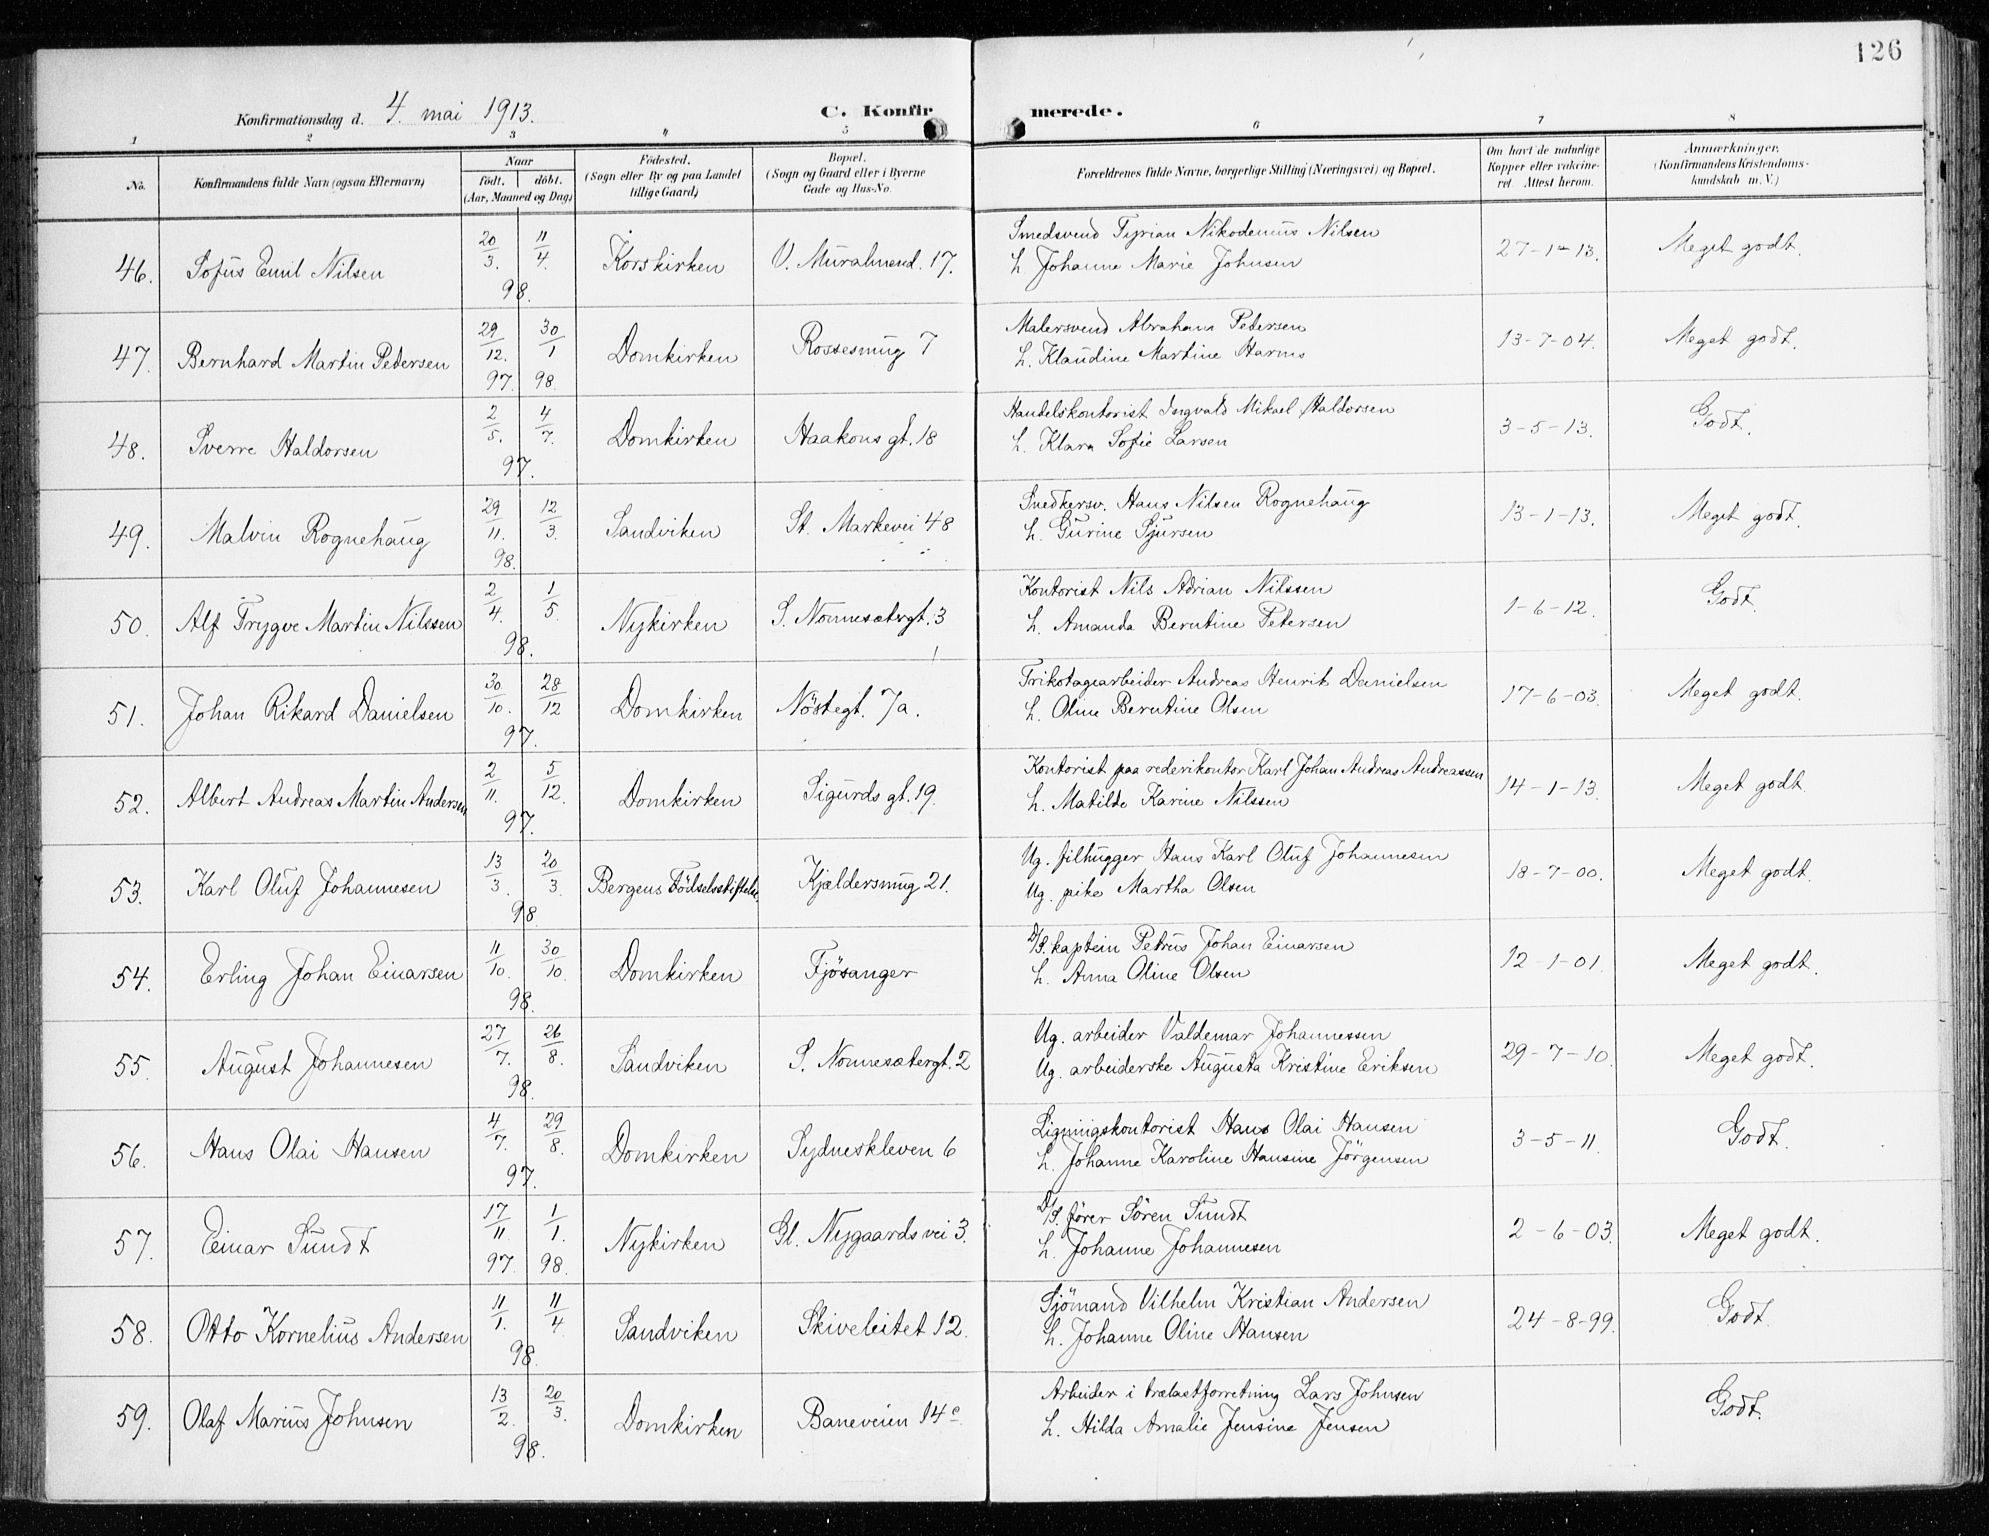 126
Konfirmationsdag d. 4. mai 1913.
C. Konfirmerede.
1 2 3 4 5 6 7 8
No. Konfirmandens fulde Navn (ogsaa Efternavn) Naar födt. döbt. (Aar, Maaned og Dag) Födested. (Sogn eller By og paa Landet tillige Gaard) Bopæl. (Sogn og Gaard eller i Byerne Gade og Hus-No. Forældrenes fulde Navne, borgerlige Stilling (Næringsvei) og Bopæl. Om havt de naturlige Kopper eller vakcineret. Attest herom. Anmærkninger. (Konfirmandens Kristendomskundskab m. V.)
46. Sofus Emil Nilsen 20/3. 11/4. 98. Korskirken V. Muralmend. 17. Smedsvend Tyrian Nikodemus Nilsen
h. Johanne Marie Johnsen 27-1-13. Meget godt.
47. Bernhard Martin Petersen 29/12. 97. 30/1 98. Domkirken Rossesmug 7 Malersvend Abraham Petersen
h. Klaudine Martine Harms 13-7-04. Meget godt.
48. Sverre Haldorsen 2/5. 4/7. 97. Domkirken Haakons gt. 18 Handelskontorist Ingvald Mikael Haldorsen
h. Klara Sofie Larsen 3-5-13. Godt.
49. Malvin Rognehaug 29/11. 12/3. 98. Sandviken St. Markevei 48 Snedkersv. Hans Nilsen Rognehaug
h. Gurine Sjursen 13-1-13. Meget godt.
50. Alf Trygve Martin Nilssen 2/4. 1/5. 98. Nykirken S. Nonnesætergt. 3 Kontorist Nils Adrian Nilssen
h. Amanda Berntine Petersen 1-6-12. Godt.
51. Johan Rikard Danielsen 30/10. 28/12 97. Domkirken Nöstegt. 7a. Trikotagearbeider Andreas Henrik Danielsen
h. Oline Berntine Olsen 17-6-03. Meget godt.
52. Albert Andreas Martin Andersen 2/11. 5/12. 97. Domkirken Sigurds gt. 19. Kontorist paa rederikontor Karl Johan Andreas Andreassen
h. Matilde Karine Nilssen 14-1-13. Meget godt.
53. Karl Oluf Johannesen 13/3. 20/3. 98 Bergens Födselsstiftelse. Kjældersmug 21. Ug. filhugger Hans Karl Oluf Johannesen
Ug. pike Martha Olsen 18-7-00. Meget godt.
54. Erling Johan Einarsen 11/10. 30/10. 98. Domkirken Fjösanger D/S. kaptein Petrus Johan Einarsen
h. Anna Oline Olsen 12-1-01. Meget godt.
55. August Johannesen 27/7. 26/8. 98. Sandviken S. Nonnesætergt. 2 Ug. arbeider Valdemar Johannessen
Ug. arbeiderske Augusta Kristine Eriksen 29-7-10. Meget godt.
56. Hans Olai Hansen 4/7. 29/8. 97. Domkirken Sydneskleven 6 Ligningskontorist Hans Olai Hansen
h. Johanne Karoline Hansine Jörgensen 3-5-11. Godt.
57. Einar Sundt 17/11. 97. 1/1. 98. Nykirken Gl. Nygaardsvei 3. D/S. förer Sören Sundt
h. Johanne Johannesen 2-6-03. Meget godt.
58. Otto Kornelius Andersen 11/1. 11/4 98. Sandviken Skiveleitet 12. Sjömand Vilhelm Kristian Andersen
h. Johanne Oline Hansen 24-8-99. Godt.
59. Olaf Marius Johnsen 13/2. 20/3. 98. Domkirken Baneveien 14c. Arbeider i trælastforretning Lars Johnsen
h. Hilda Amalie Jensine Jensen Godt.